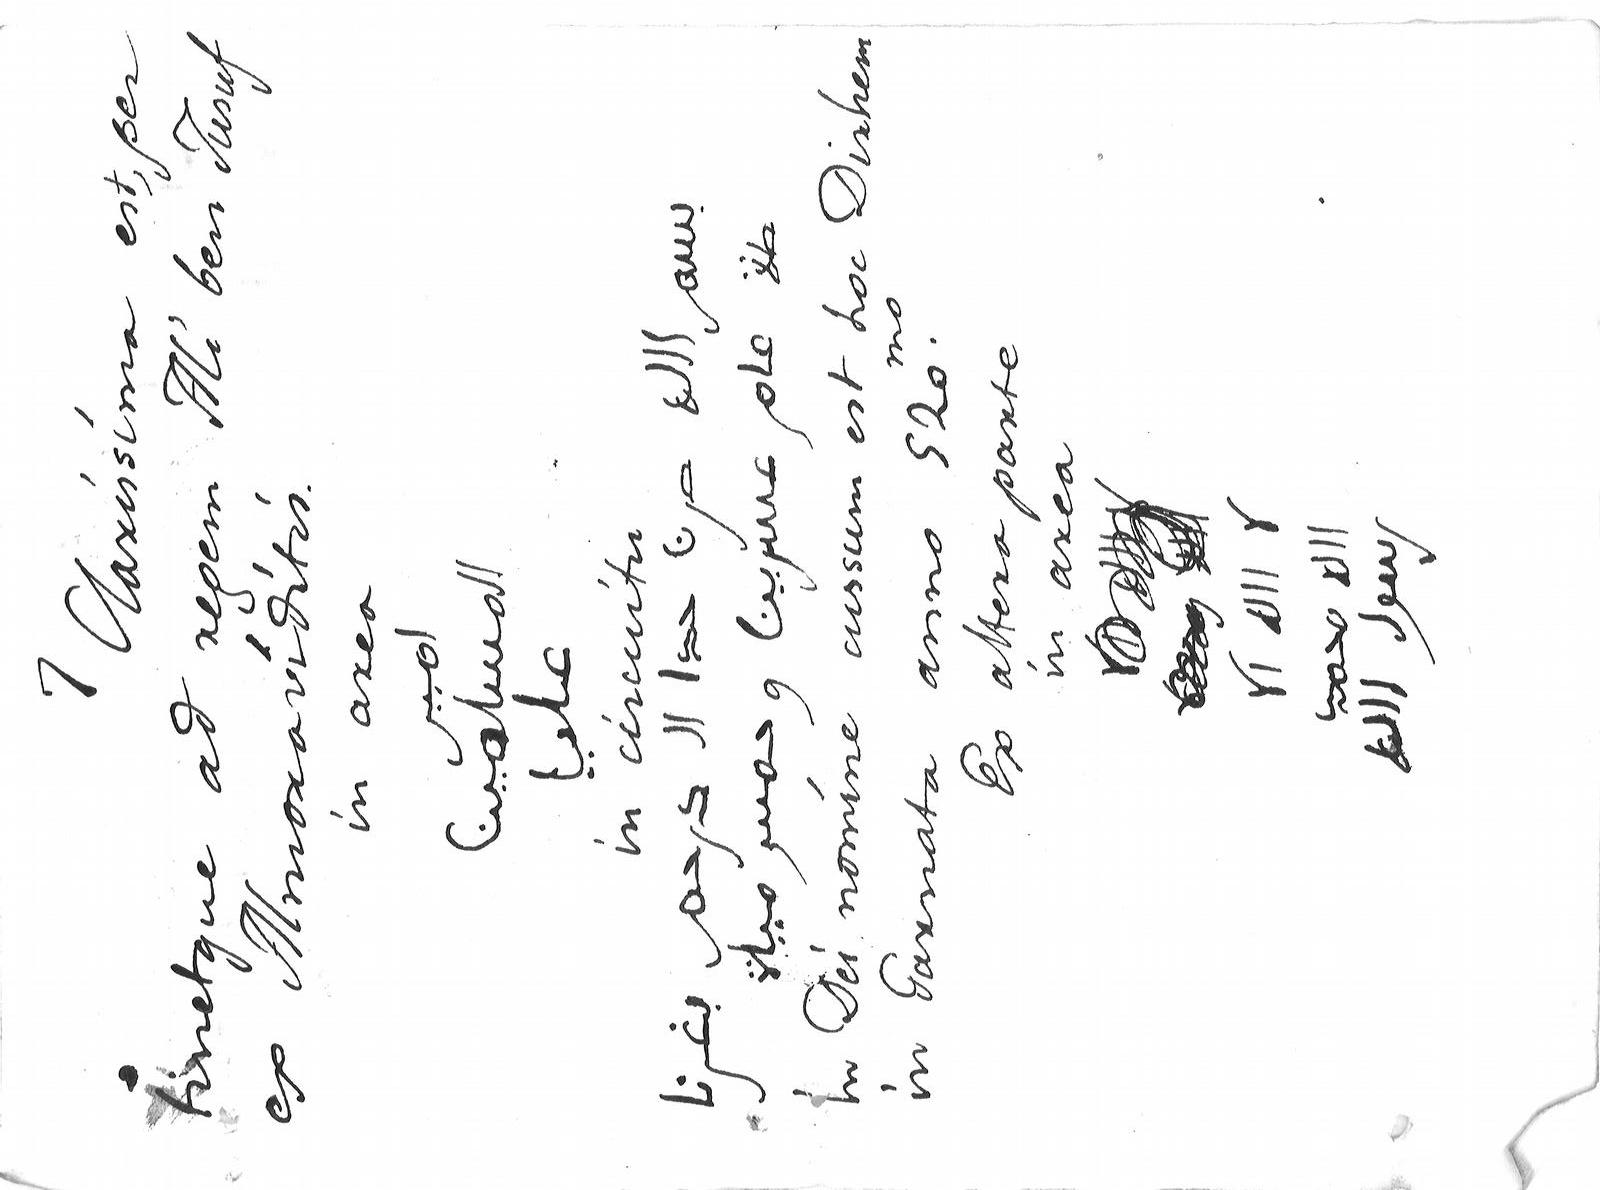 7
Clarissima est, per
tinetque ad regem Ali ben Jusuf
ex Almoraviditis.
in area
امير
المسلمين
علي
in circuitu
بسم الله ضرب هذا الدرهم بغرنا
طة عام عشرين و خمس مياة
in Dei nomine cussum est hoc Dirhem
in Garnata anno 520.mo
Ex altera parte
in area
لا اله الا
الله محمد
رسول الله